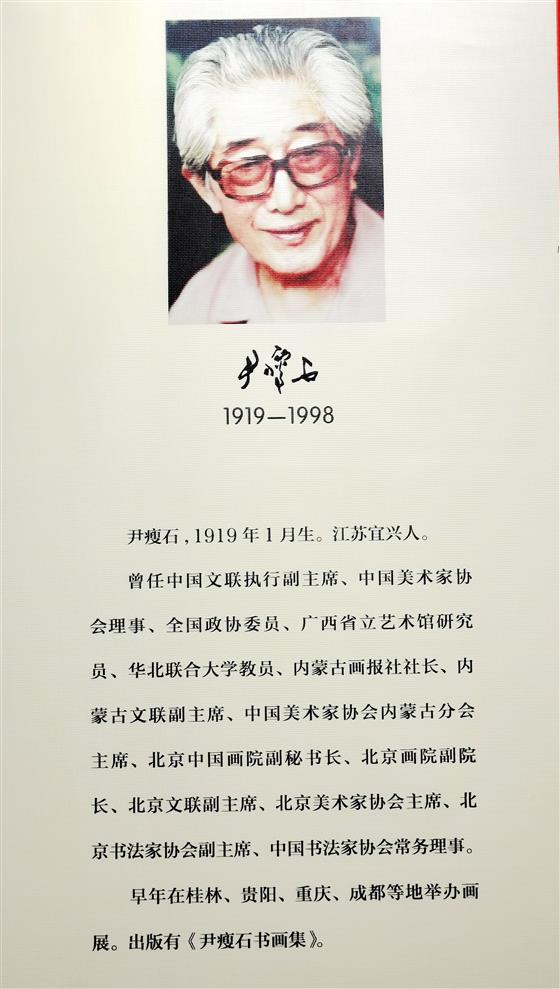 尹瘦石
1919—1998
尹瘦石，1919年1月生。江苏宜兴人。
曾任中国文联执行副主席、中国美术家协
会理事、全国政协委员、广西省立艺术馆研究
员、华北联合大学教员、内蒙古画报社社长、内
蒙古文联副主席、中国美术家协会内蒙古分会
主席、北京中国画院副秘书长、北京画院副院
长、北京文联副主席、北京美术家协会主席、北
京书法家协会副主席、中国书法家协会常务理事。
早年在桂林、贵阳、重庆、成都等地举办画
展。出版有《尹瘦石书画集》。